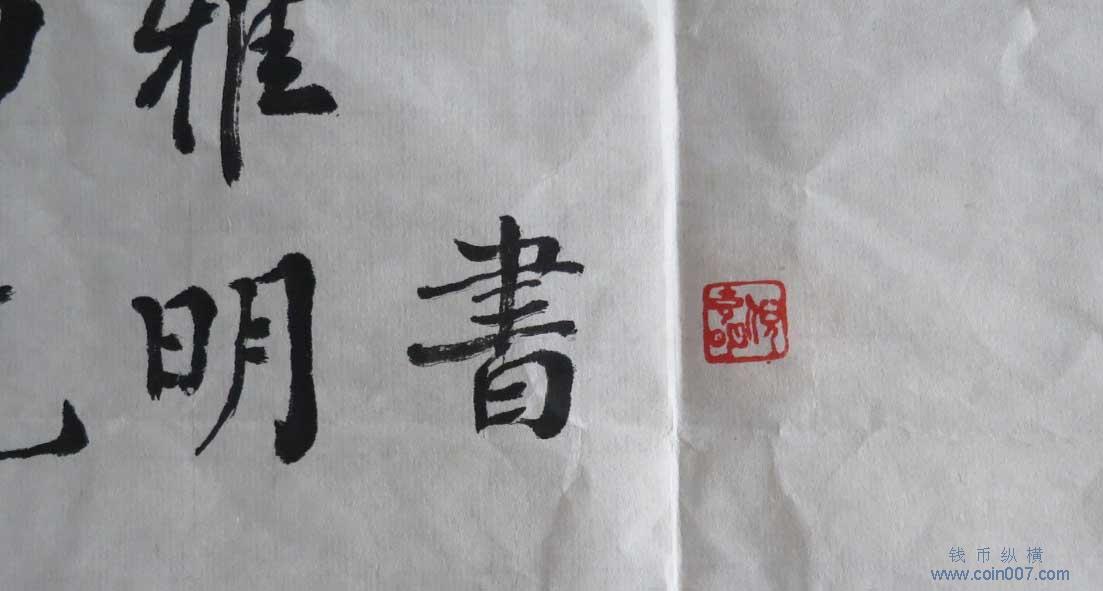 雅
明書
钱币纵横
www.coin007.com